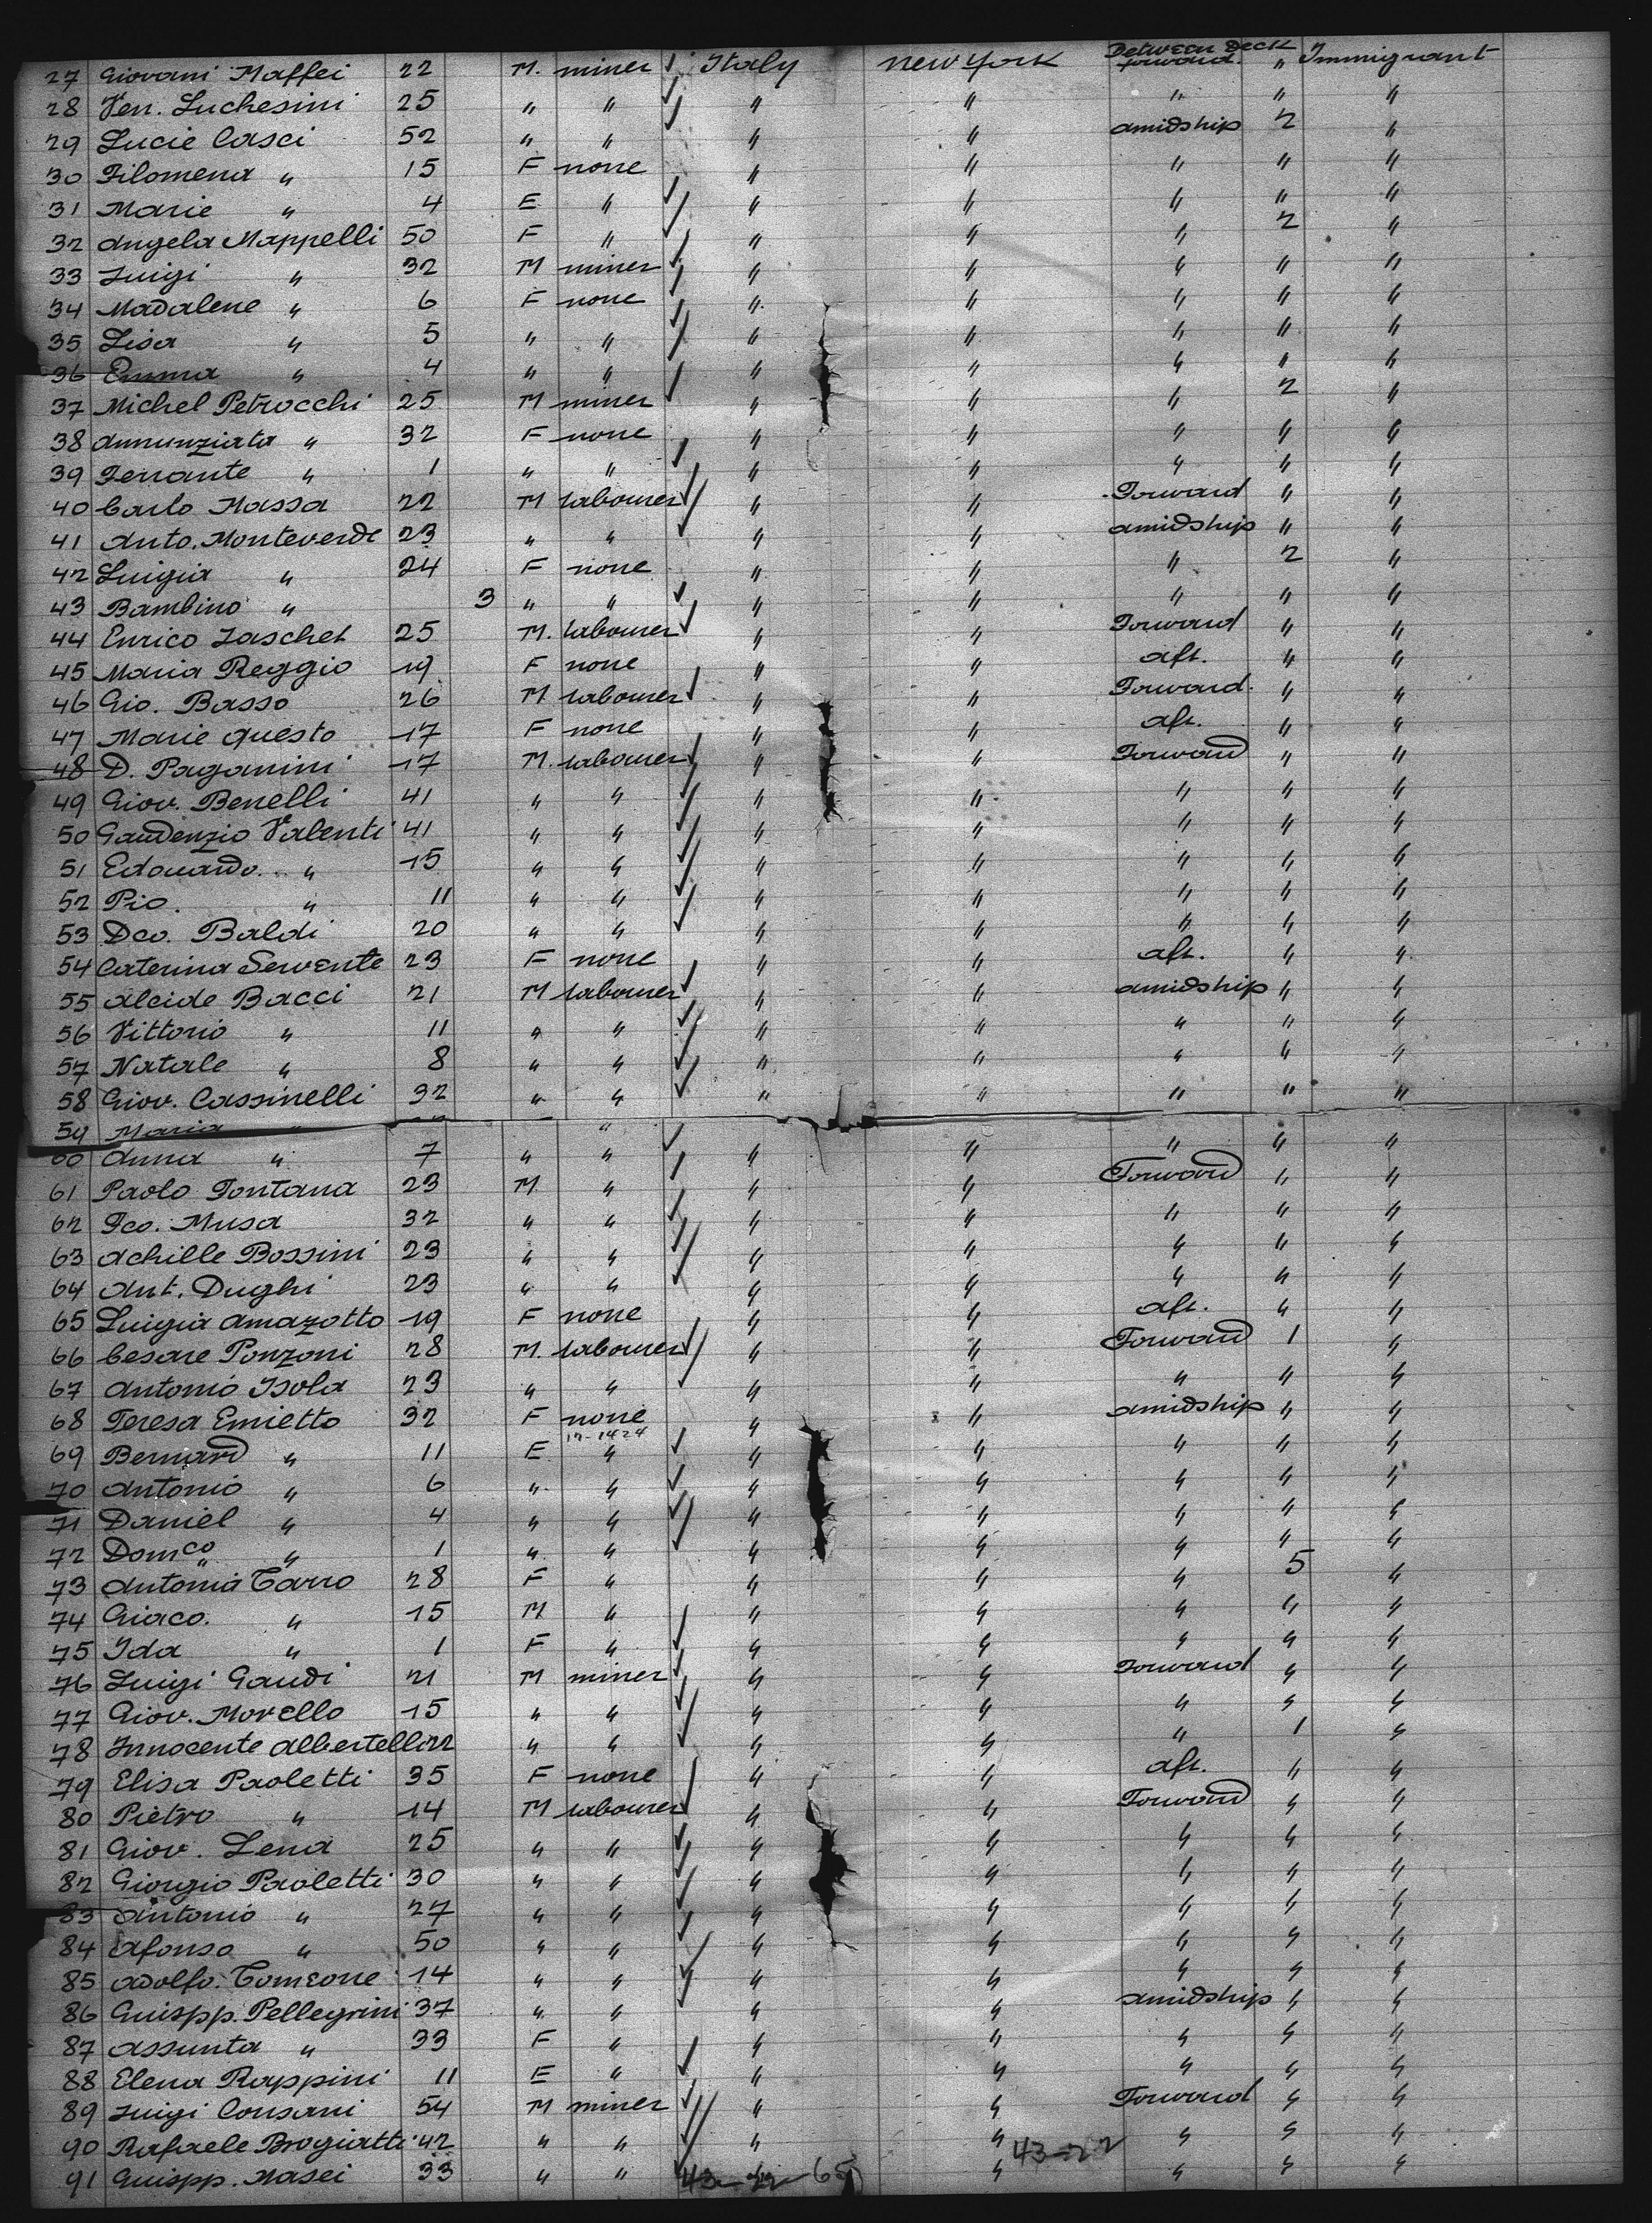 27 Giovani Maffei 22 M. miner Italy New York Between Deck forward. " Immigrant
28 Ven. Luchesini 25 " " " " " " "
29 Lucie Casci 52 " " " " amidship 2 "
30 Filomena " 15 F none " " " " "
31 Marie " 4 F " " " " " "
32 Angela Mappelli 50 F " " " " 2 "
33 Luigi " 32 M miner " " " " "
34 Madalene " 6 F none " " " " "
35 Lisa " 5 " " " " " " "
36 Emma " 4 " " " " " " "
37 Michel Petrocchi 25 M miner " " " 2 "
38 Annunziata " 32 F none " " " " "
39 Ferrante " 1 " " " " " " "
40 Carlo Massa 22 M labourer " " Forward " "
41 Anto. Monteverde 23 " " " " amidship " "
42 Luigia " 24 F none " " " 2 "
43 Bambino " 3 " " " " " " "
44 Enrico Jaschet 25 M. labourer " " Forward " "
45 Maria Reggio 19 F none " " aft. " "
46 Gio. Basso 26 M labourer " " Forward. " "
47 Marie Questo 17 F none " " aft. " "
48 D. Paganini 17 M. labourer " " Forward " "
49 Giov. Benelli 41 " " " " " " "
50 Gaudenzio Valenti 41 " " " " " " "
51 Edouardo. " 15 " " " " " " "
52 Pio. " 11 " " " " " " "
53 Dco. Baldi 20 " " " " " " "
54 Caterina Servente 23 F none " " aft. " "
55 Alcide Bacci 21 M labourer " " amidship " "
56 Vittorio " 11 " " " " " " "
57 Natale " 8 " " " " " " "
58 Giov. Cassinelli 32 " " " " " " "
59 Maria " "
60 Anna " 7 " " " " " " "
61 Paolo Fontana 23 M. " " " Forward " "
62 Fco. Musa 32 " " " " " " "
63 Achille Bossini 23 " " " " " " "
64 Ant. Dughi 23 " " " " " " "
65 Luigia Amazotto 19 F none " " aft. " "
66 Cesare Ponzoni 28 M. labourer " " Forward 1 "
67 Antonio Isola 23 " " " " " " "
68 Teresa Emietto 32 F none " " amidship " "
17-1424
69 Bernard " 11 E " " " " " "
70 Antonio " 6 " " " " " " "
71 Daniel " 4 " " " " " " "
72 Domco " 1 " " " " " " "
73 Antonia Carro 28 F " " " " 5 "
74 Giaco. " 15 M " " " " " "
75 Ida " 1 F " " " " " "
76 Luigi Gaudi 21 M miner " " Forward " "
77 Giov. Morello 15 " " " " " " "
78 Innocente Albertelli 22 " " " " " 1 "
79 Elisa Paoletti 35 F none " " aft. " "
80 Pietro " 14 M labourer " " Forward " "
81 Giov. Lena 25 " " " " " " "
82 Giorgio Paoletti 30 " " " " " " "
83 Antonio " 27 " " " " " " "
84 Afonso " 50 " " " " " " "
85 Adolfo. Comeone 14 " " " " " " "
86 Guispp. Pellegrini 37 " " " " amidship " "
87 Assunta " 33 F " " " " " "
88 Elena Rappini 11 E " " " " " "
89 Luigi Consani 54 M miner " " Forward " "
90 Rafaele Brogiatti 42 " " " " " " "
43-22
91 Guispp. Masei 33 " " " " " " "
43-22-65